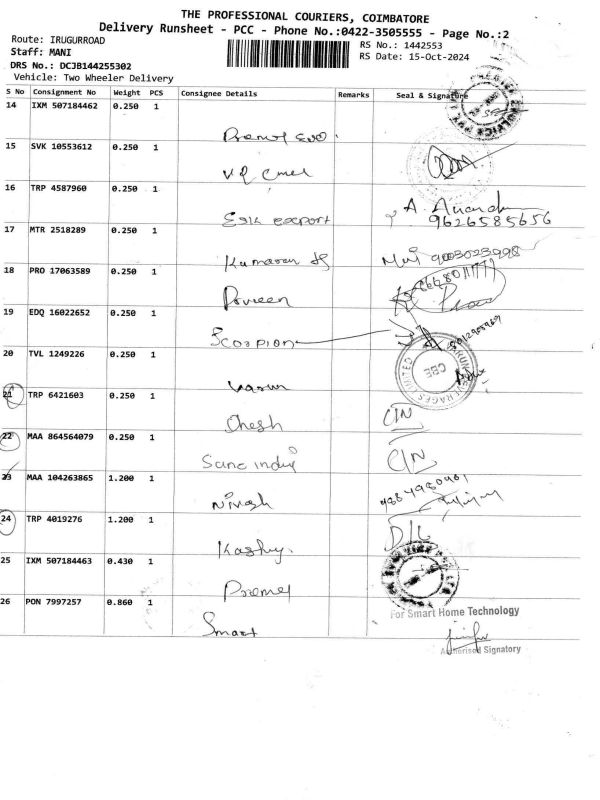 THE PROFESSIONAL COURIERS, COIMBATORE
Delivery Runsheet - PCC - Phone No.:0422-3505555 - Page No.:2
Route: IRUGURROAD
RS No.: 1442553
Staff: MANI
RS Date: 15-Oct-2024
DRS No.: DCJB144255302
Vehicle: Two Wheeler Delivery
S No Consignment No Weight PCS Consignee Details Remarks Seal & Signature
14 IXM 507184462 0.250 1
15 SVK 10553612 0.250 1
16 TRP 4587960 0.250 1 Esik export A. Anandu
9626585656
17 MTR 2518289 0.250 1 Kumaran
18 PRO 17063589 0.250 1 Praveen
19 EDQ 16022652 0.250 1 Scorpion
20 TVL 1249226 0.250 1 Varun
CBE
21 TRP 6421603 0.250 1 Chesh C/N
22 MAA 864564079 0.250 1 C/N
23 MAA 104263865 1.200 1 Nivash
24 TRP 4019276 1.200 1 D/L
25 IXM 507184463 0.430 1
26 PON 7997257 0.860 1 Smart
For Smart Home Technology
Authorised Signatory